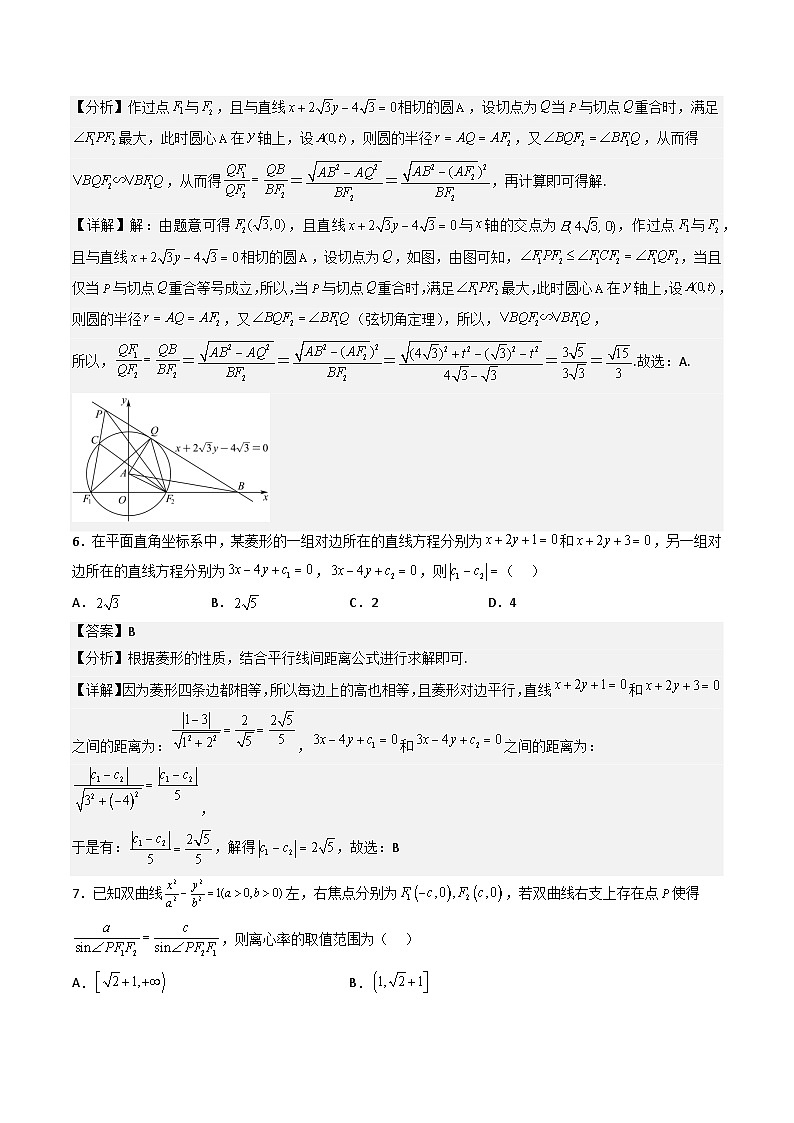 【分析】作过点F₁与F₂，且与直线x+2√3y−4√3=0相切的圆A，设切点为Q当P与切点Q重合时，满足
∠F₁PF₂最大，此时圆心A在y轴上，设A(0,t)，则圆的半径r=AQ=AF₂，又∠BQF₂=∠BF₁Q，从而得
VBQF₂∽VBF₁Q，从而得QF₁/QF₂=QB/BF₂=√(AB²−AQ²)/BF₂=√(AB²−(AF₂)²)/BF₂，再计算即可得解.
【详解】解：由题意可得F₂(√3,0)，且直线x+2√3y−4√3=0与x轴的交点为B(4√3,0)，作过点F₁与F₂，
且与直线x+2√3y−4√3=0相切的圆A，设切点为Q，如图，由图可知，∠F₁PF₂≤∠F₁CF₂=∠F₁QF₂，当且
仅当P与切点Q重合等号成立，所以，当P与切点Q重合时，满足∠F₁PF₂最大，此时圆心A在y轴上，设A(0,t)，
则圆的半径r=AQ=AF₂，又∠BQF₂=∠BF₁Q（弦切角定理），所以，VBQF₂∽VBF₁Q，
所以，QF₁/QF₂=QB/BF₂=√(AB²−AQ²)/BF₂=√(AB²−(AF₂)²)/BF₂=√((4√3)²+t²−(√3)²−t²)/(4√3−√3)=3√5/3√3=√15/3.故选：A.
y
P
C
Q
x+2√3y−4√3=0
A
B
F₁
O
F₂
x
6．在平面直角坐标系中，某菱形的一组对边所在的直线方程分别为x+2y+1=0和x+2y+3=0，另一组对
边所在的直线方程分别为3x−4y+c₁=0，3x−4y+c₂=0，则|c₁−c₂|=（ ）
A．2√3 B．2√5 C．2 D．4
【答案】B
【分析】根据菱形的性质，结合平行线间距离公式进行求解即可.
【详解】因为菱形四条边都相等，所以每边上的高也相等，且菱形对边平行，直线x+2y+1=0和x+2y+3=0
之间的距离为：|1−3|/√(1²+2²)=2/√5=2√5/5，3x−4y+c₁=0和3x−4y+c₂=0之间的距离为：
|c₁−c₂|/√(3²+(−4)²)=|c₁−c₂|/5，
于是有：|c₁−c₂|/5=2√5/5，解得|c₁−c₂|=2√5，故选：B
7．已知双曲线x²/a²−y²/b²=1(a>0,b>0)左，右焦点分别为F₁(−c,0),F₂(c,0)，若双曲线右支上存在点P使得
a/sin∠PF₁F₂=c/sin∠PF₂F₁，则离心率的取值范围为（ ）
A．[√2+1,+∞) B．(1,√2+1]